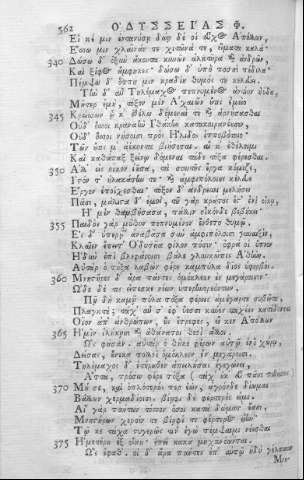 362 ὈΔΥΣΣΕΊΑΣ Φ.
Εἴ κέ μιν ἐντανύσῃ, δώῃ δέ οἱ εὖχος Ἀπόλλων,
Ἕσσω μιν χλαῖνάν τε χιτῶνά τε, εἵματα καλά·
340 Δώσω δ' ὀξὺν ἄκοντα κυνῶν ἀλκτῆρα καὶ ἀνδρῶν,
Καὶ ξίφος ἄμφηκες· δώσω δ' ὑπὸ ποσσὶ πέδιλα·
Πέμψω δ' ὅππη μιν κραδίη θυμός τε κελεύει.
Τὴν δ' αὖ Τηλέμαχος πεπνυμένος ἀντίον ηὔδα,
Μῆτερ ἐμὴ, τόξον μὲν Ἀχαιῶν οὔτις ἐμεῖο
345 Κρείσσων ᾧ κ' ἐθέλω δόμεναί τε καὶ ἀρνήσασθαι
Οὔθ' ὅσσοι κραναὴν Ἰθάκην κατακοιρανέουσιν,
Οὔθ' ὅσσοι νήσοισι πρὸς Ἤλιδος ἱπποβότοιο·
Τῶν οὔτις μ' ἀέκοντα βιήσεται, αἴ κ' ἐθέλωμι
Καὶ καθάπαξ ξείνῳ δόμεναι τάδε τόξα φέρεσθαι.
350 Ἀλλ' εἰς οἶκον ἰοῦσα, τὰ σαυτῆς ἔργα κόμιζε,
Ἱστόν τ' ἠλακάτην τε, καὶ ἀμφιπόλοισι κέλευε
Ἔργον ἐποίχεσθαι· τόξον δ' ἄνδρεσσι μελήσει
Πᾶσι, μάλιστα δ' ἐμοί, τοῦ γὰρ κράτος ἔστ' ἐνὶ οἴκῳ.
Ἡ μὲν θαμβήσασα, πάλιν οἶκόνδε βεβήκει·
355 Παιδὸς γὰρ μῦθον πεπνυμένον ἔνθετο θυμῷ.
Ἐς δ' ὑπερῷ' ἀναβᾶσα σὺν ἀμφιπόλοισι γυναιξὶν,
Κλαῖεν ἔπειτ' Ὀδυσῆα φίλον πόσιν· ὄφρα οἱ ὕπνον
Ἡδὺν ἐπὶ βλεφάροισι βάλε γλαυκῶπις Ἀθήνη.
Αὐτὰρ ὁ τόξα λαβὼν φέρε καμπύλα δῖος ὑφορβός·
360 Μνηστῆρες δ' ἄρα πάντες ὁμόκλεον ἐν μεγάροισιν·
Ὧδε δέ τις εἴπεσκε νέων ὑπερηνορεόντων,
Πῇ δὴ καμπύλα τόξα φέρεις ἀμέγαρτε συβῶτα,
Πλαγκτέ; τάχ' αὖ σ' ἐφ' ὕεσσι κύνες ταχέες κατέδονται
Οἶον ἀπ' ἀνθρώπων, οὓς ἔτρεφες, εἴ κεν Ἀπόλλων
365 Ἡμῖν ἱλήκῃσι καὶ ἀθάνατοι θεοὶ ἄλλοι.
Ὣς φάσαν. αὐτὰρ ὁ θῆκε φέρων αὐτῇ ἐνὶ χώρῃ,
Δείσας, οὕνεκα πολλοὶ ὁμόκλεον ἐν μεγάροισι.
Τηλέμαχος δ' ἑτέρωθεν ἀπειλήσας ἐγεγώνει,
Ἄττα, πρόσω φέρε τόξα (τάχ' οὐκ εὖ πᾶσι πιθήσεις)
370 Μή σε, καὶ ὁπλότερός περ ἐὼν, ἀγρόνδε δίωμαι
Βάλλων χερμαδίοισι· βίηφι δὲ φέρτερός εἰμι.
Αἲ γὰρ πάντων τόσσον ὅσοι κατὰ δώματ' ἔασι,
Μνηστήρων χερσίν τε βίηφί τε φέρτερος εἴην·
Τῷ κε τάχα στυγερῶς τιν' ἐγὼ πέμψαιμι νέεσθαι
375 Ἡμετέρου ἐξ οἴκου· ἐπεὶ κακὰ μηχανόωνται.
Ὣς ἔφαθ'. οἱ δ' ἄρα πάντες ἐπ' αὐτῷ ἡδὺ γέλασσαν
Μνη-